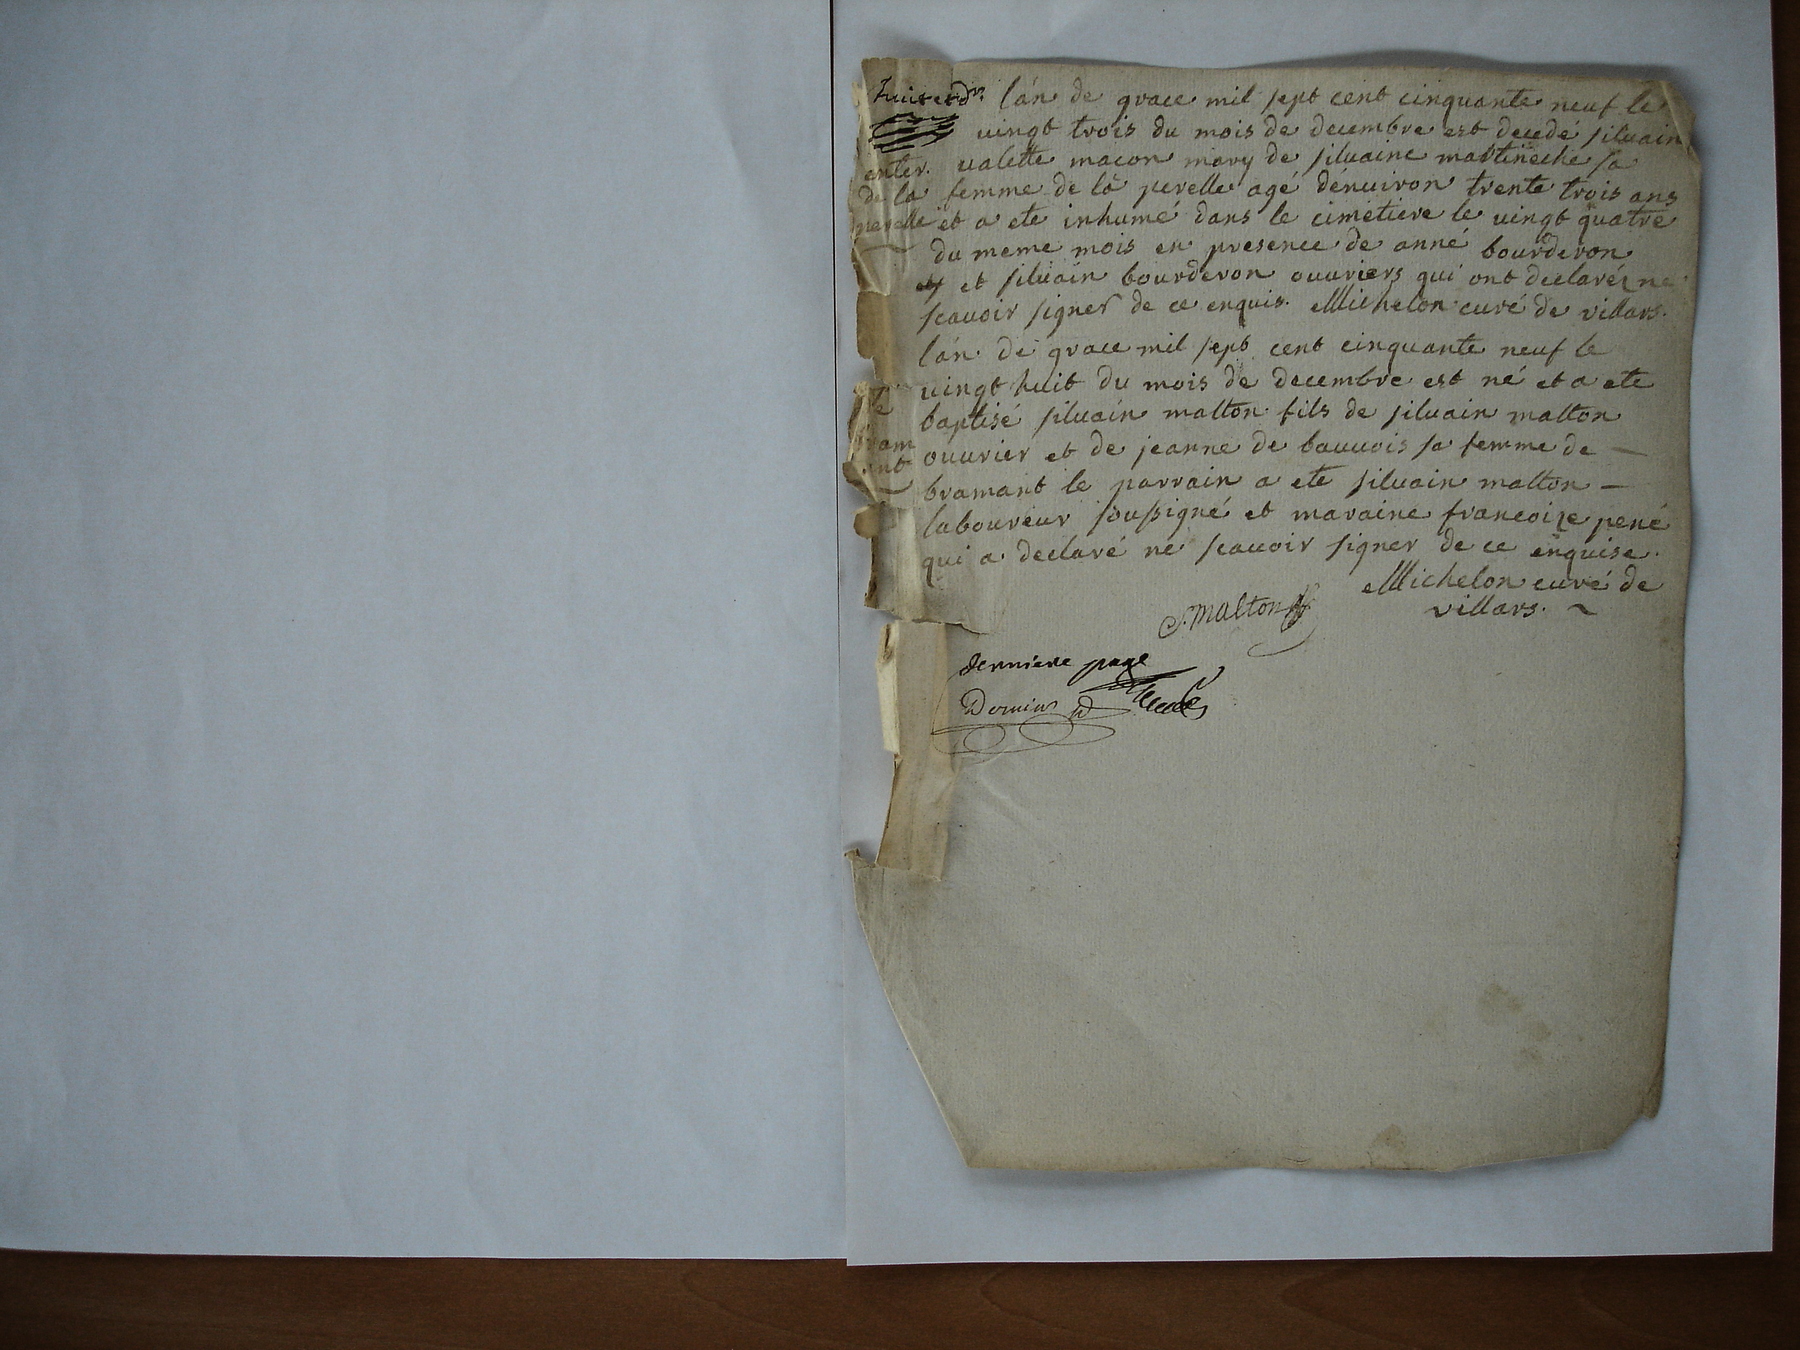 huit et dr.
enter.
de la
perelle
lán de grace mil sept cent cinquante neuf le
vingt trois du mois de decembre est decedé siluain
valette macon mary de siluaine martineche sa
femme de lá perelle agé dénuiron trente trois ans
et a ete inhumé dans le cimetiere le vingt quatre
du meme mois en presence de anné bourderon
et siluain bourderon ouuriers qui ont declaréz ne
scauoir signer de ce enquis. Michelon curé de villars.
lán de grace mil sept cent cinquante neuf le
vingt huit du mois de decembre est né et a ete
baptisé siluain malton fils de siluain malton
ouurier et de jeanne de bauuois sa femme de
bramant le parrain a ete siluain malton
laboureur soussigné et maraine francoize pené
qui a declaré ne scauoir signer de ce enquise.
Michelon curé de
villars.
S. malton
derniere page